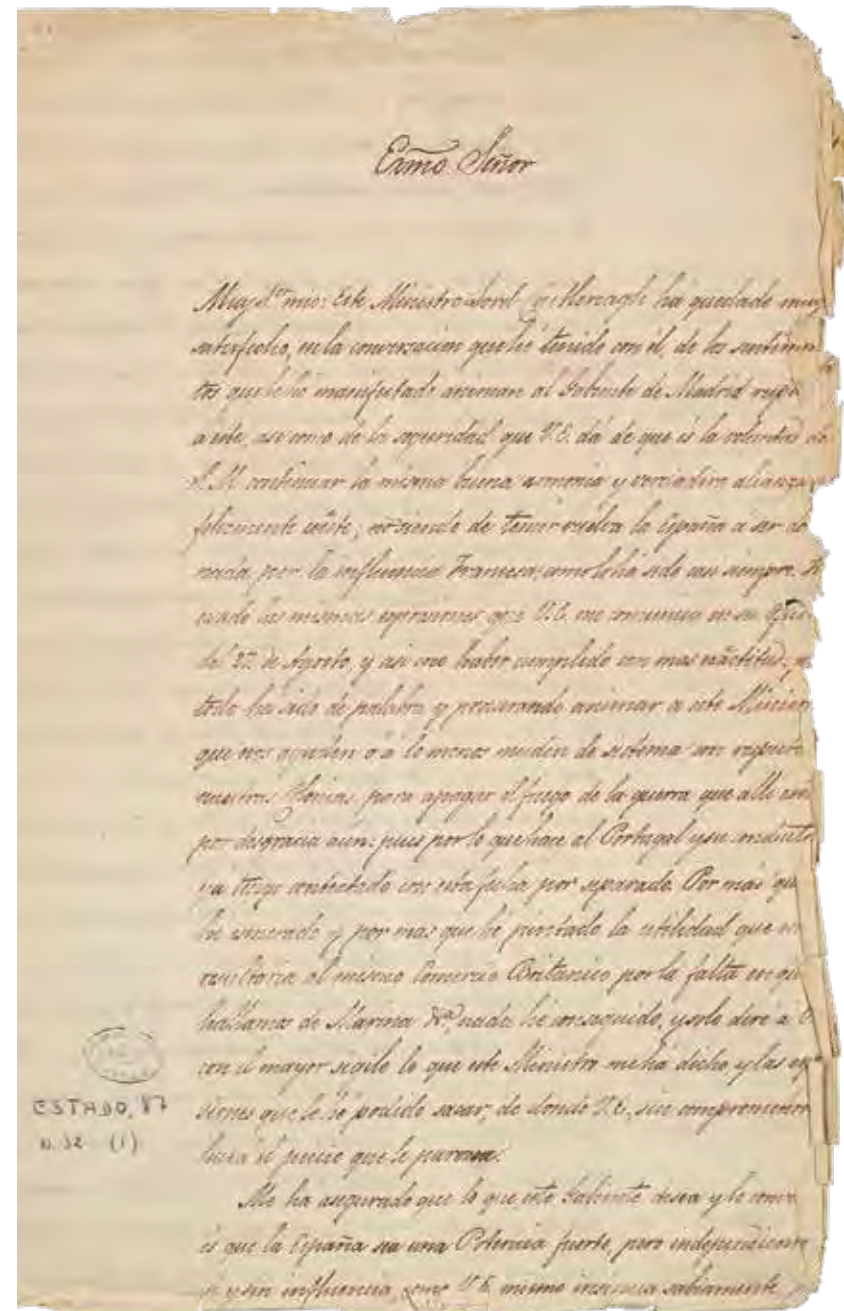 Exmo. Señor
Muy Sr. mio: Este Ministro Lord Castlereagh há quedado muy
satisfecho, en la conversacion que hé tenido con él, de los sentimien
tos que le hé manifestado animan al Gabinete de Madrid resp
a este, asi como de la seguridad que V.E. dá de que és la voluntad de
S.M. continuar la misma buena armonia y verdadera alianza
felizmente existe, no siendo de temer vuelva la España á ser do
nada por la influencia Francesa, como lo há sido casi siempre.
usado las mismas expresiones que V.E. me comunica en su Ofi
del 27 de Agosto, y asi creo haber cumplido con mas exactitud,
todo ha sido de palabra y procurando animar a este Minis
que nos ayuden ó á lo menos muden de sistema con respecto
nuestras para apagar el fuego de la guerra que alli
por desgracia aun: pues por lo que hace al Portugal y su conducta
yá tengo contextado con esta fecha por separado. Por más que
hé esmerado y por mas que hé pintado la utilidad que
resultaria al mismo Comercio Britanico por la falta en que
hallamos de Marina Rl. nada hé conseguido, y solo diré á V.
con el mayor sigilo lo que este Ministro me há dicho, y las
siones que le hé podido sacar, de donde V.E., sin comprometer
hará el juicio que le paresca.
Me ha asegurado que lo que este Gabinete desea y le
és que la España sea una Potencia fuerte, pero independiente
y sin influencia, como V.E. mismo sabiamente
ESTADO, 87
N. 32 (1)